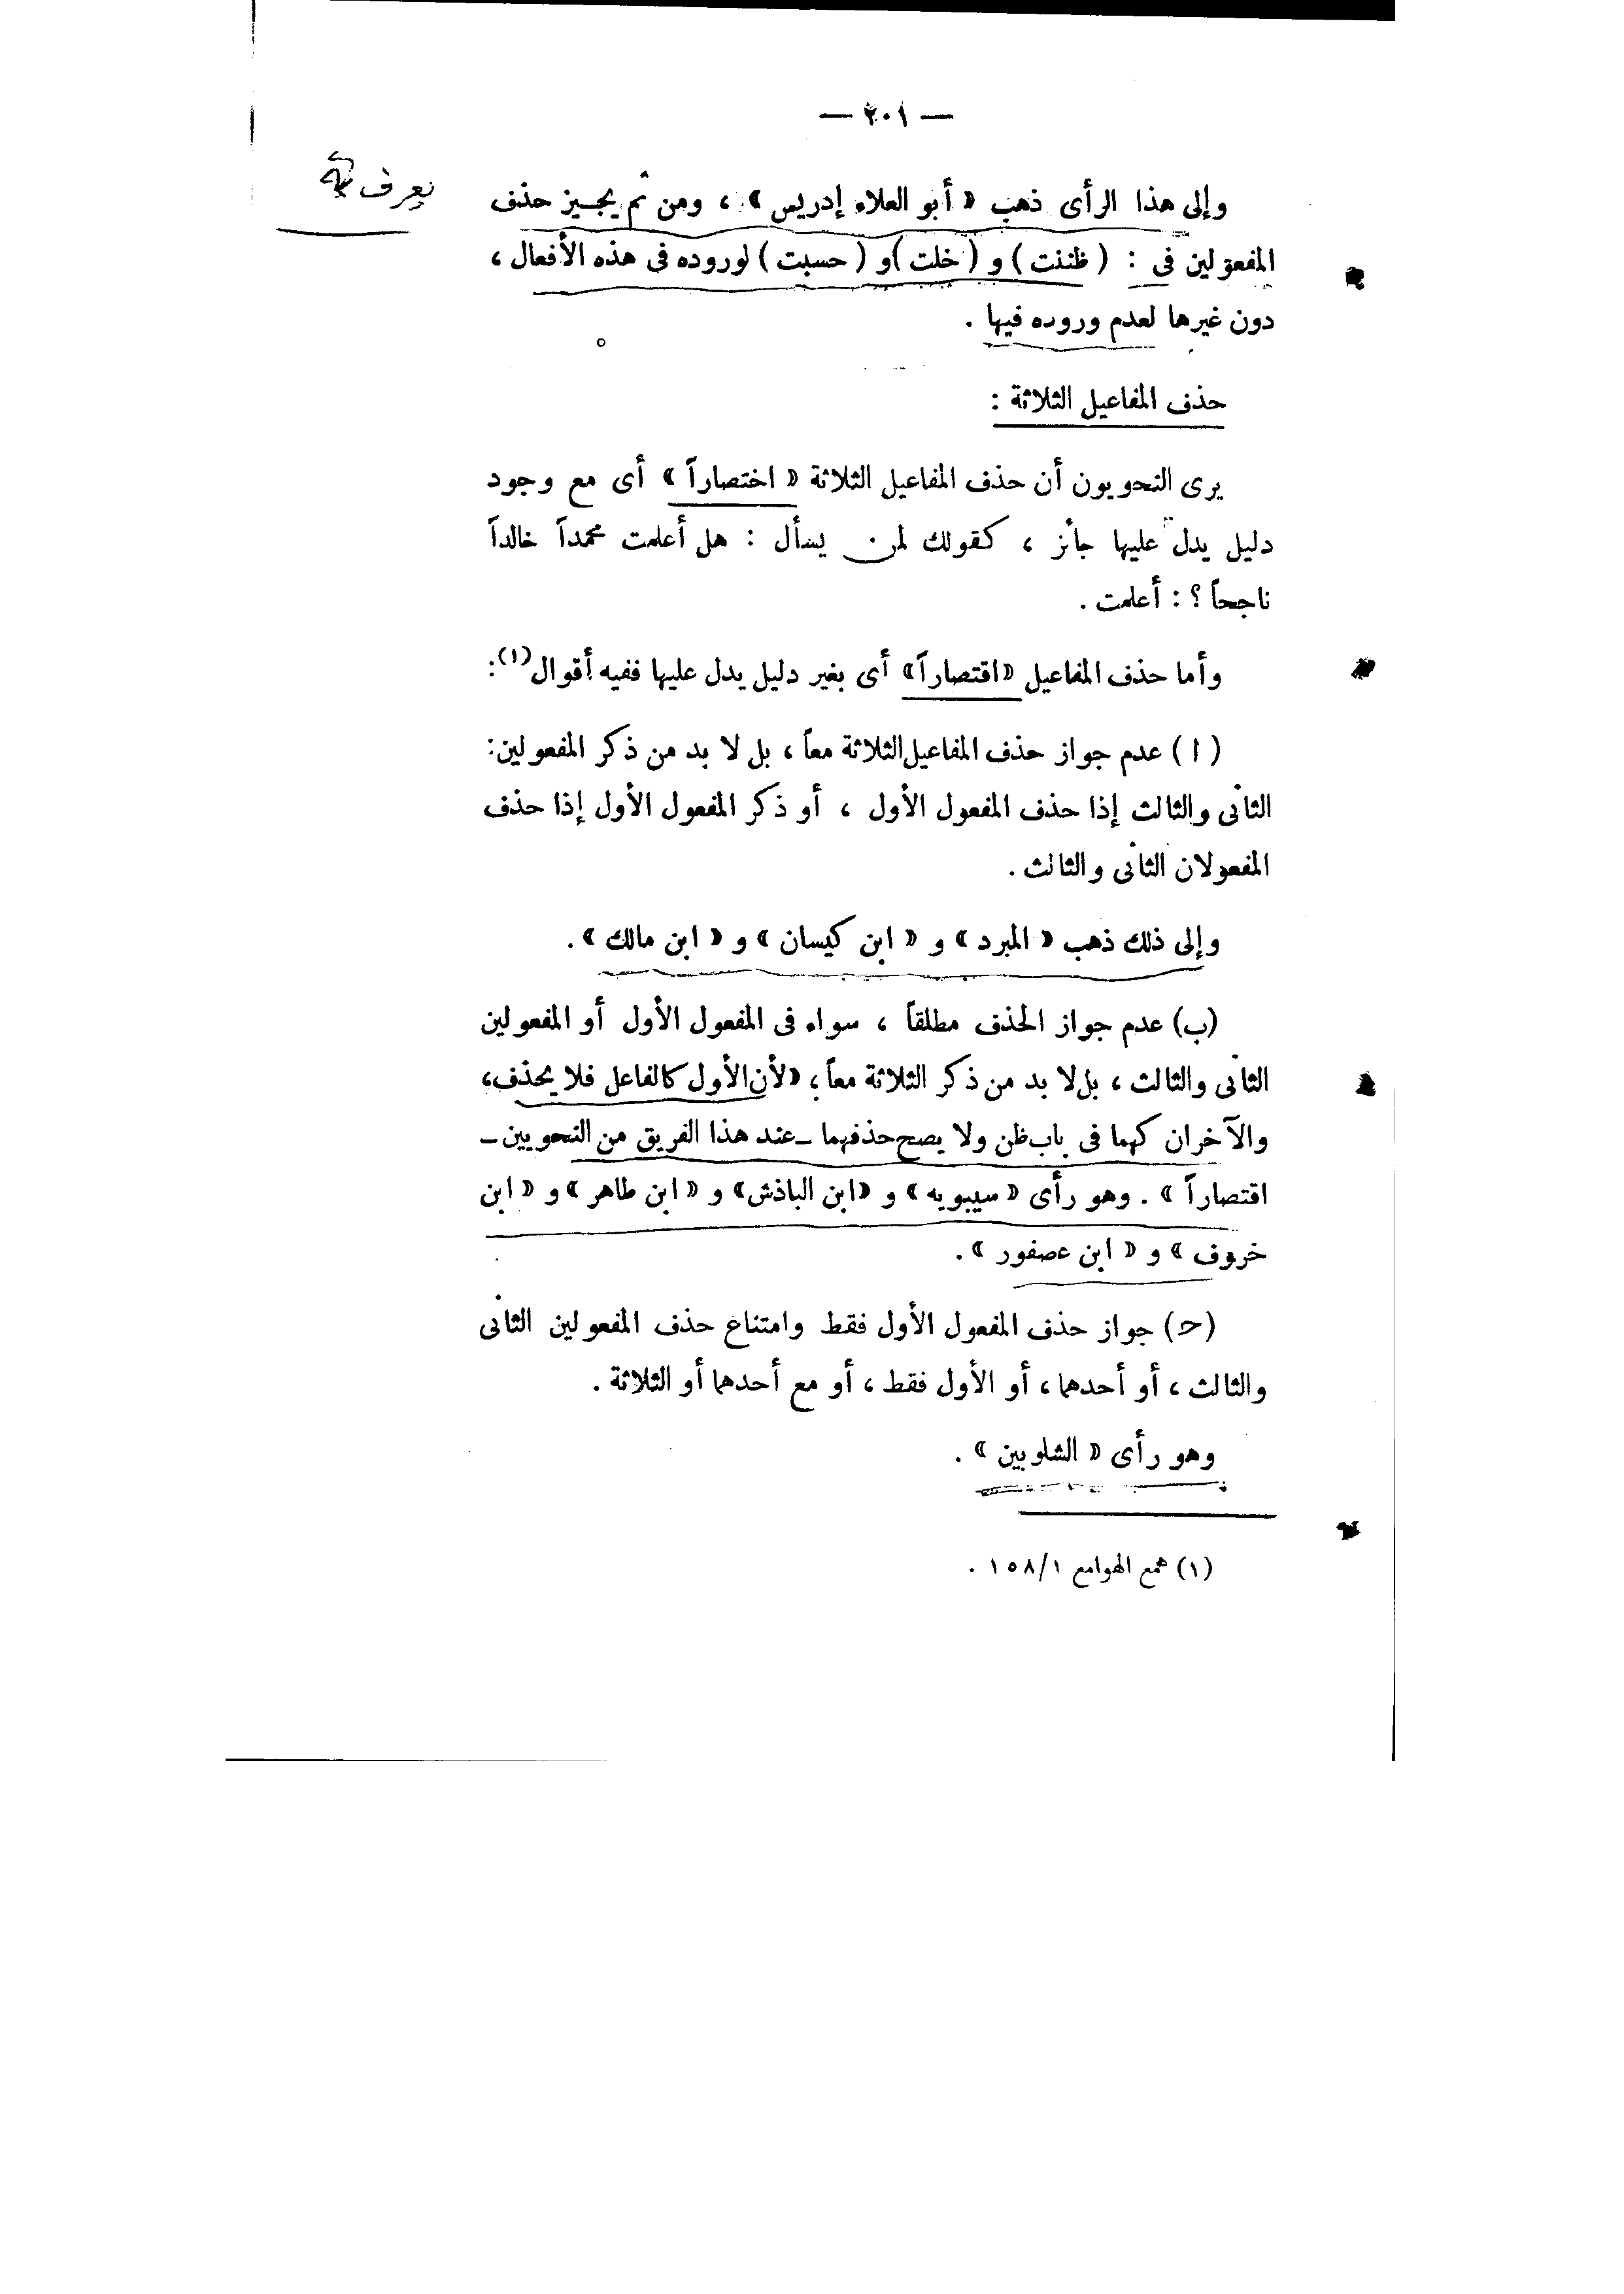 — ٢٠١ —
وإلى هذا الرأى ذهب « أبو العلاء إدريس » ، ومن ثم يجيز حذف
المفعولين فى : ( ظننت ) و ( خلت ) و ( حسبت ) لوروده فى هذه الأفعال ،
دون غيرها لعدم وروده فيها .
حذف المفاعيل الثلاثة :
يرى النحويون أن حذف المفاعيل الثلاثة « اختصاراً » أى مع وجود
دليل يدل عليها جائز ، كقولك لمن يسأل : هل أعلمت محمداً خالداً
ناجحاً ؟ : أعلمت .
وأما حذف المفاعيل «اقتصاراً» أى بغير دليل يدل عليها ففيه أقوال(١):
( ا ) عدم جواز حذف المفاعيل الثلاثة معاً ، بل لا بد من ذكر المفعولين:
الثانى والثالث إذا حذف المفعول الأول ، أو ذكر المفعول الأول إذا حذف
المفعولان الثانى والثالث .
وإلى ذلك ذهب « المبرد » و « ابن كيسان » و « ابن مالك » .
(ب) عدم جواز الحذف مطلقاً ، سواء فى المفعول الأول أو المفعولين
الثانى والثالث ، بل لا بد من ذكر الثلاثة معاً ؛ «لأن الأول كالفاعل فلا يحذف ،
والآخران كهما فى باب ظن ولا يصح حذفهما ــ عند هذا الفريق من النحويين ــ
اقتصاراً » . وهو رأى « سيبويه » و «ابن الباذش» و « ابن طاهر » و « ابن
خروف » و « ابن عصفور » .
(ح) جواز حذف المفعول الأول فقط وامتناع حذف المفعولين الثانى
والثالث ، أو أحدهما ، أو الأول فقط ، أو مع أحدهما أو الثلاثة .
وهو رأى « الشلوبين » .
(١) همع الهوامع ١/١٥٨ .